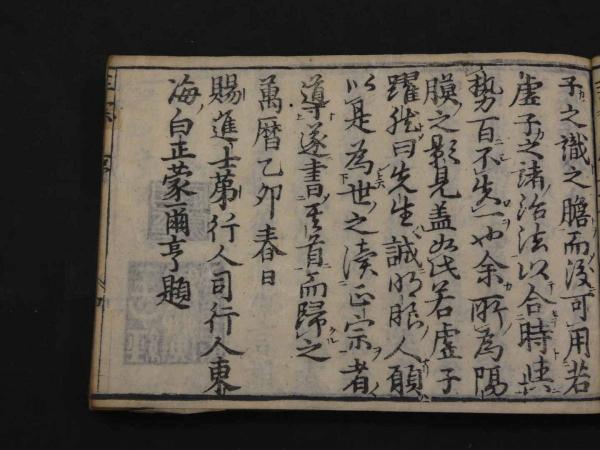 子之識之膽而後可用若
虛子之諸治法以合時
勢百不失一也余所為隔
膜之影見盖如此若虛子
躍然曰先生誠明眼人願
以是為世之讀正宗者
導遂書其首而歸之
萬曆乙卯春日
賜進士第行人司行人東
海白正蒙爾亨題